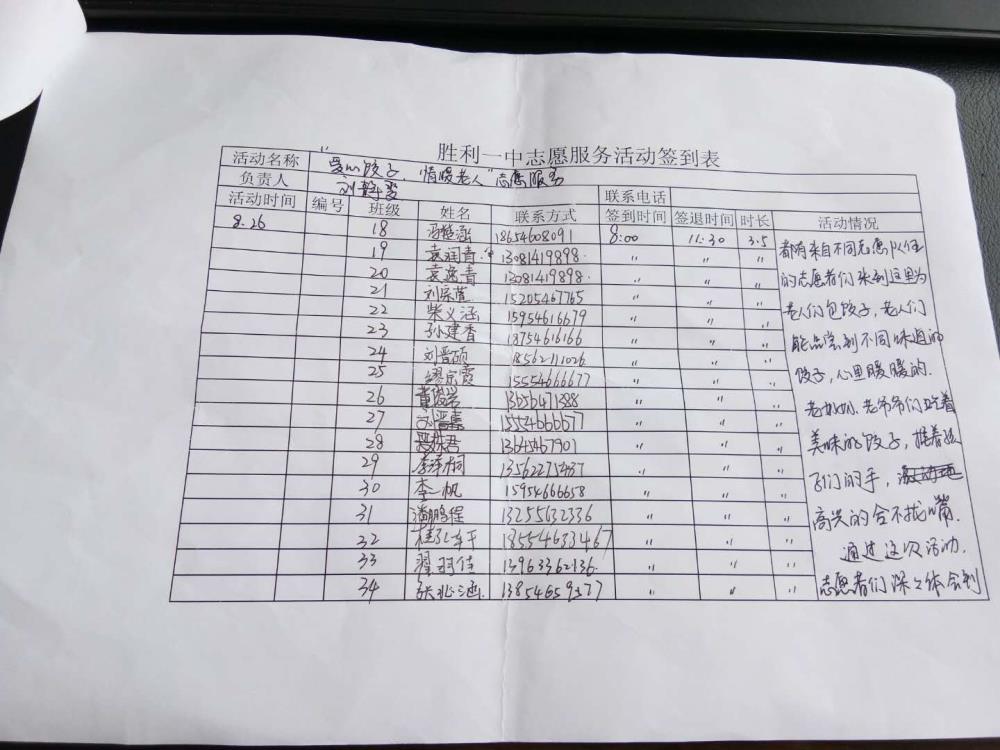 胜利一中志愿服务活动签到表
活动名称 "爱心饺子，情暖老人"志愿服务
负责人 联系电话
活动时间 编号 班级 姓名 联系方式 签到时间 签退时间 时长 活动情况
8.26 18 冯楚涵 18654608091 8:00 11:30 3.5
19 袁润青 13081419898 〃 〃 〃
20 袁逸青 13081419898 〃 〃 〃
21 15205467765 〃 〃 〃
22 柴义涵 15954616679 〃 〃 〃
23 孙建香 18754616166 〃 〃 〃
24 刘晋硕 18562111026 〃 〃 〃
25 15554666677 〃 〃 〃
26 〃 〃 〃
27 15554666677 〃 〃 〃
28 13645467901 〃 〃 〃
29 李泽桐 13562275437 〃 〃 〃
30 李一帆 15954666658 〃 〃 〃
31 潘鹏程 13255632336 〃 〃 〃
32 18554633467 〃 〃 〃
33 翟羽佳 13963362136 〃 〃 〃
34 〃 〃 〃
都有来自不同志愿队伍
的志愿者们来到这里为
老人们包饺子，老人们
能品尝到不同味道的
饺子，心里暖暖的.
老奶奶、老爷爷们吃着
美味的饺子，握着孩
子们的手，
高兴的合不拢嘴.
通过这次活动.
志愿者们深深体会到